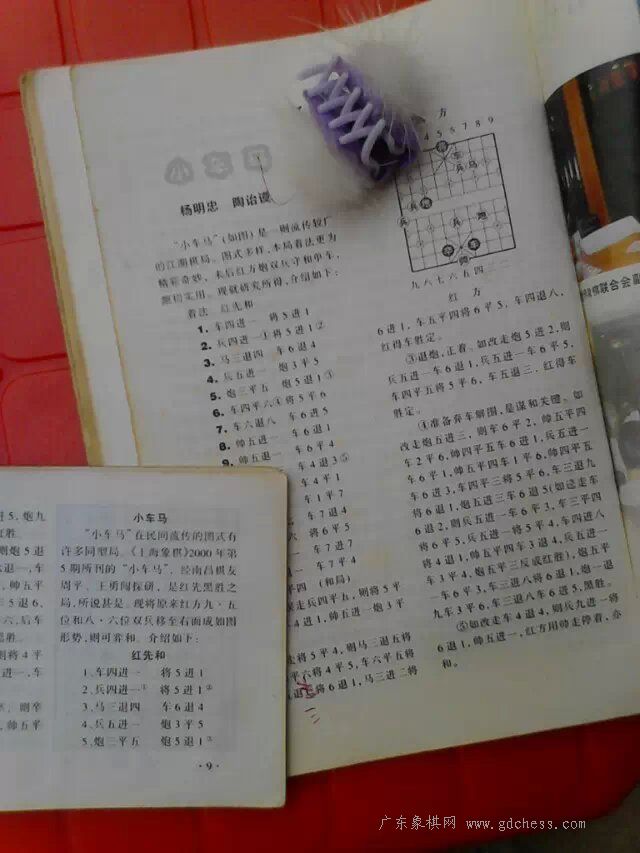 小车马
杨明忠 陶诒谟
“小车马”(如图)是一则流传较广
的江湖棋局。图式多样,本局着法更为
精彩奇妙,末后红方炮双兵守和单车,
颇切实用。现就研究所得,介绍如下:
着法 红先和
1. 车四进一 将5进1
2. 兵四进一① 将5进1②
3. 马三退四 车6退4
4. 兵五进一 炮3平5
5. 炮三平五 炮5退1③
6. 车四平六④ 将5平6
7. 车六退八 车6进5
8. 帅五进一 车6退1
9. 帅五退一 车6平4
车4退3⑤
车1平4
车1平7
车7退4
将6平5
车7进1
四 (和局)
走兵四平五,则将5平
4进1,帅五进一 炮3平
5平4,则马三退五将
六将4平5,车六平五将
将6退1,马三进二将
方
4 5 6 7 8 9
车
兵 马
兵 炮
兵 炮
九八七六五四
红 方
6进1,车五平四将6平5,车四退八,
红得车胜定。
③退炮,正着。如改走炮5进2,则
兵五进一车6退1,兵五进一车6平5,
车四平五将5平6,车五退三,红得车
胜定。
④准备弃车解围,是谋和关键。如
改走炮五进三,则车6平2,帅五平四
车2平6,帅四平五车6进1,兵五进一
车6平1,帅五平四车1平6,帅四平五
车6进3,车四平三将5平6,车三退九
将6退1,炮五进三车6退5(如送走车
6退2,则兵五进一车6平3,帅五平四
车6平3,兵五进一将5平4,车三进八
将4退1,帅五平四车3退4,兵五平四
车3平4,炮五平三反成红胜),炮五平
一车6平3,车三进八将6退1,炮一退
九车3平6,车三退八车6进5,黑胜。
⑤如改走车4退4,则兵九进一将
6退1,帅五进一,红方用帅走停着,亦
和。
小车马
“小车马”在民间流传的图式有
许多同型局。《上海象棋》2000年第
5期所刊的“小车马”,经南昌棋友
周平、王勇闯探研,是红先黑胜之
局,所说甚是。现将原来红方九·五
位和八·六位双兵移至右面成如图
形势,则可弈和。介绍如下:
红先和
1. 车四进一 将5进1
2. 兵四进一① 将5进1②
3. 马三退四 车6退4
4. 兵五进一 炮3平5
5. 炮三平五 炮5退1③
·9·
进5,炮九
红胜。
则炮5退
退1,
,帅五平
车5退6,
六,后车
胜。
则将4平
,则车
,帅五平
棋联合会副
广东象棋网 www.gdchess.com